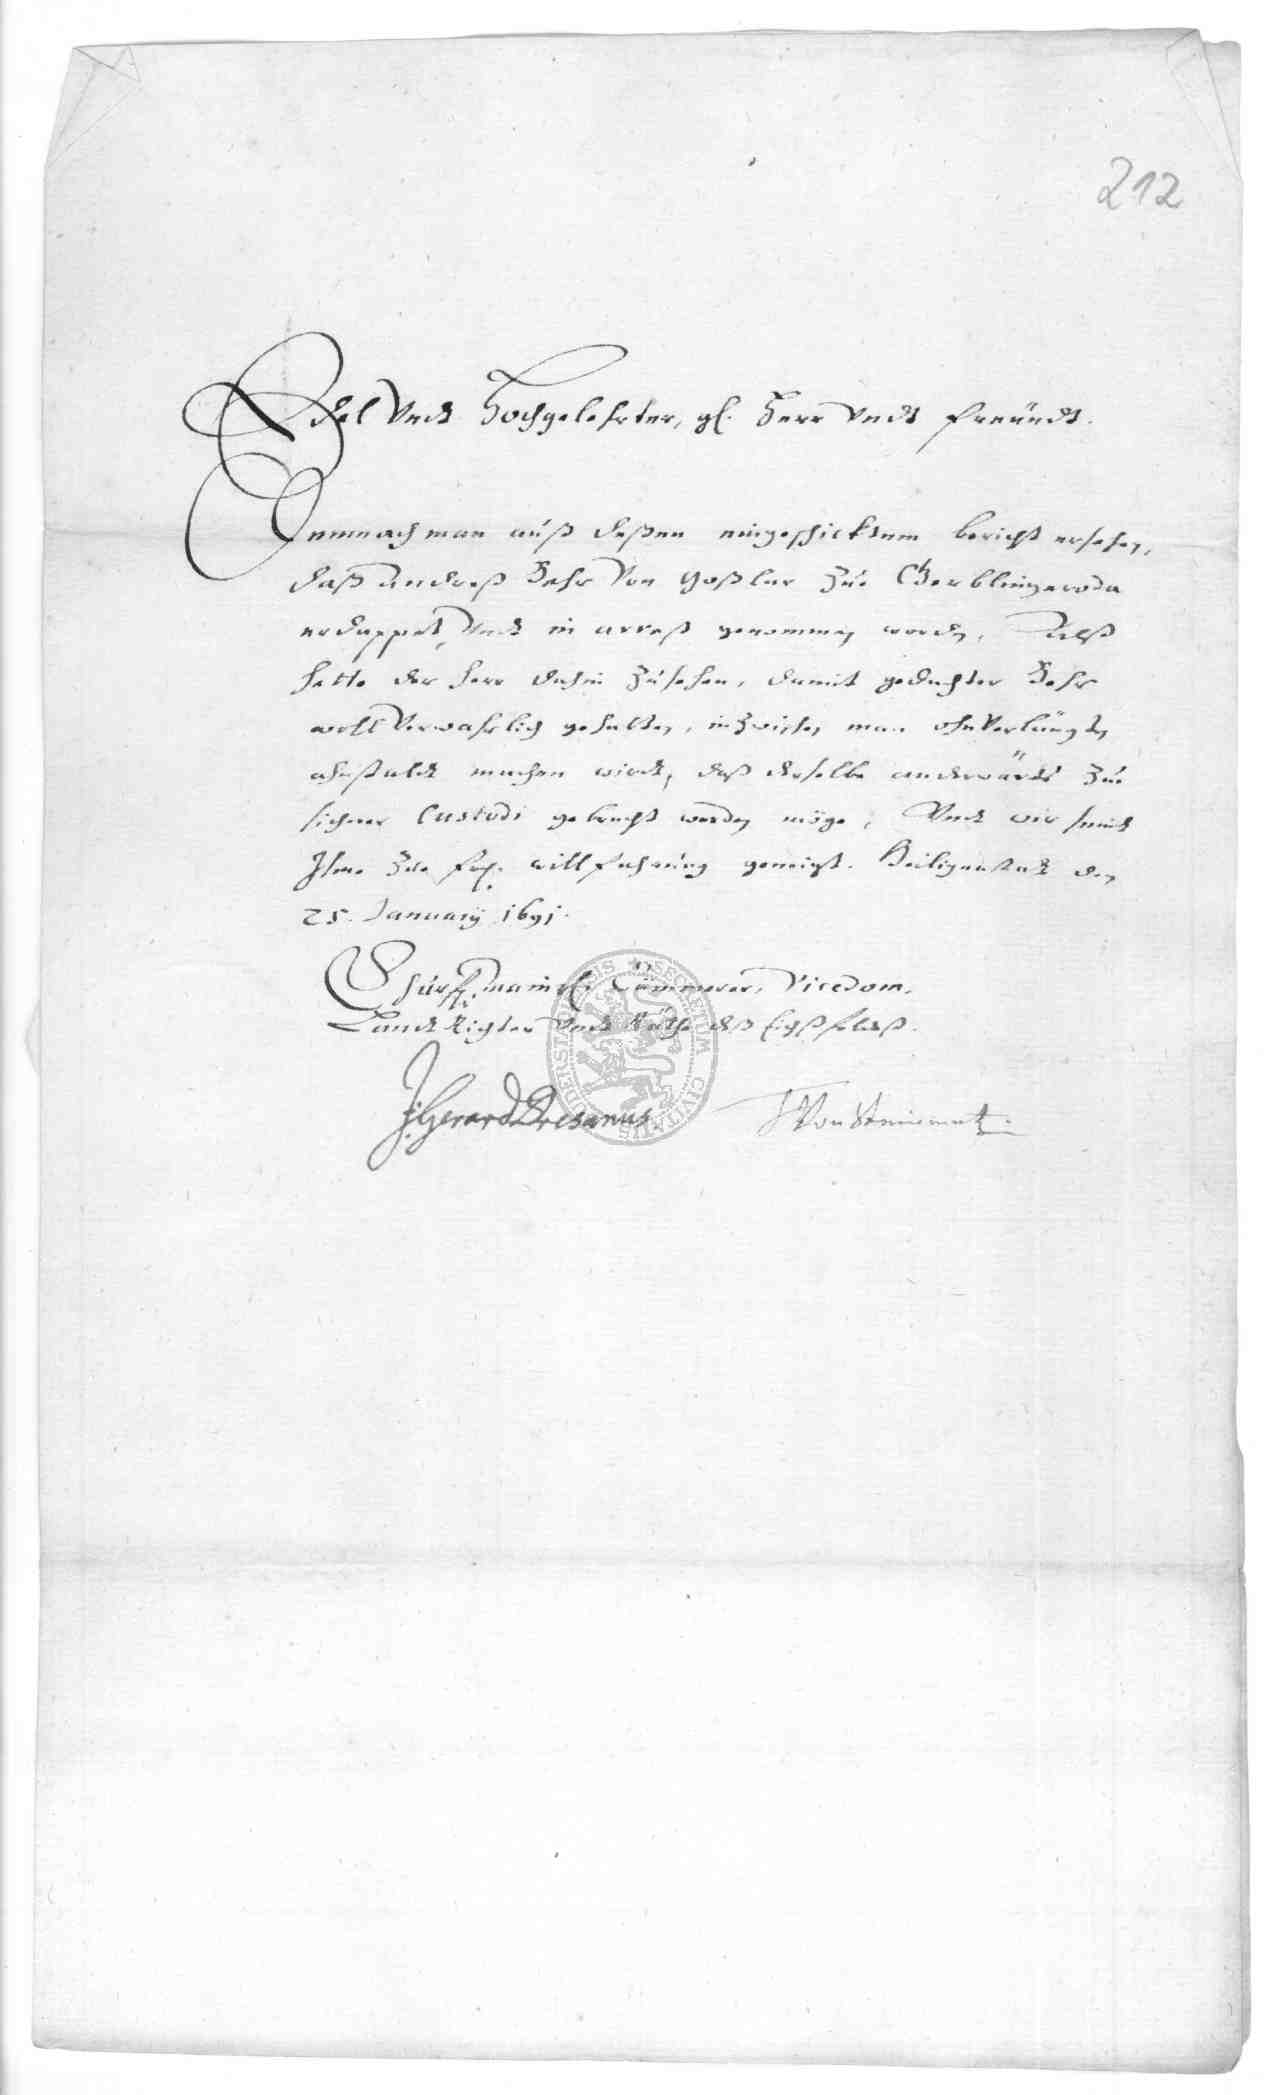 212
Edel Vndt Hochgelehrter, gl. Herr Vndt freündt.
Demnach man auß deßen eingeschicktem bericht ersehen,
daß Andreß Behr Von Goßlar zue Gerblingeroda
erdappet, Vndt in arrest genommen worden, Alß
hette der herr dahin zusehen, damit gedachter Behr
wohl Verwahrlich gehalten, inzwischen man ohnVerlängte
ahnstaldt machen wirdt, daß derselbe anderwärts zue
sicherer Custodi gebracht werden möge, Vndt wir seindt
Ihme zue frl. willfahrung geneigt. Heiligenstadt den
25. January 1691.
Churfl. maintzl. Cämmerer, Vicedom,
Landt Richter Vndt Räthe deß Eichßfeldtß.
J. Gerard Dresanus
SECRETUM CIVITATIS DUDERSTADIENSIS